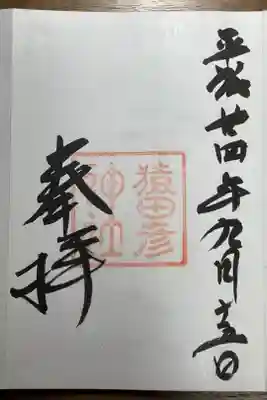 平成廿四年九月十五日
猿田彦
神社
奉拝